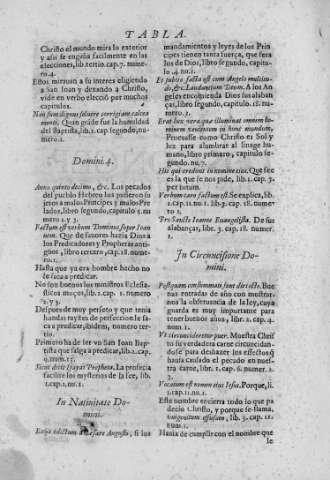 TABLA.
Christo el mundo mira lo exterior
y assi se engaña facilmente en las
elecciones, lib. tertio. cap. 7. nume-
ro. 4.
Estos mirauan a su interes eligiendo
a San Ioan y dexando a Christo,
vide en verbo elecció por muchos
capitulos.
Non sum dignus soluere corrigiam calcea
menti. Quan gráde fue la humildad
del Baptista, lib. 1. cap segundo, nu-
mero. 1.
Domini. 4.
Anno quinto decimo, &c. Los pecados
del pueblo Hebreo los pusieron su
jetos a malos Principes y malos Pre
lados, libro segundo, capitulo 5. nu
mero 1. y 3.
Factum est verbum Domini super Ioan
nem. Que de fauores hazia Dios a
los Predicadores y Prophetas anti-
guos, libro tercero, cap. 18. nume-
ro. 1.
Hasta que ya era hombre hecho no
le saca a predicar.
No son buenos los ministros Eclesia-
sticos moços, lib. 2. cap. 1. numero
2. y 3.
Despues de muy perfeto y que tenia
hondas rayzes de perfection le sa-
ca a predicar, ibidem, numero ter-
tio.
Primero ha de ser vn San Ioan Bap-
tista que salga a predicar, lib. 2. cap.
9. num. 15.
Sicut dixit Isayas Propheta. La profecia
facilite los mysterios de la Fee, lib.
1. cap. 1. nu. 1.
In Natiuitate Do-
mini.
Exijt edictum a Cesare Augusto, si los
mandamientos y leyes de los Prin
cipes tienen tanta fuerça, que sera
los de Dios, libro segundo, capitu-
lo. 4. nu. 1.
Et subito facta est cum Angelo multitu-
do, &c. Laudantium Deum. A los An
geles encomienda Dios sus alaban
ças, libro segundo, capitulo. 18. nu-
mero. 3.
Erat lux vera que illuminat omnem ho-
minem venientem in hunc mundum,
Prueuasse como Christo es Sol y
luz para alumbrar al linage hu-
mano, libro primero, capitulo se-
gundo. nu. 7.
His qui credunt in nomine eius. Que fee
es la que se nos pide, lib. 1. cap. 5.
per totum.
Verbum caro factum est. Se explica, lib.
1. cap. 11. nu. 1. lib. 3. cap. 18. nume
ro 1.
Pro Sancto Ioanne Euangelista. De sus
alabanças, libr. 3. cap. 18. numero
1.
In Circuncisione Do-
mini.
Postquam consummati sunt dies octo. Bue
nas entradas de año con mostrar-
nos la obseruancia de la ley, cuya
guarda es muy importante para
tener buenos años, libr. 2. cap. 4.
num 1.
Vt circuncideretur puer. Muestra Chris
to su verdadera carne circuncidan-
dose para deshazer los effectos q
hauia causado el pecado en nues-
tra carne, libr. 2. cap. 1. numero.
2.
Vocatum est nomen eius Iesus. Porque, li.
1. cap. 10. nu. 1.
Este nombre encierra todo lo que pa
decio Christo, y porque se llama,
vnguentum effusum, lib. 3. cap. 11.
num. 1.
Hauia de cumplir con el nombre que
le